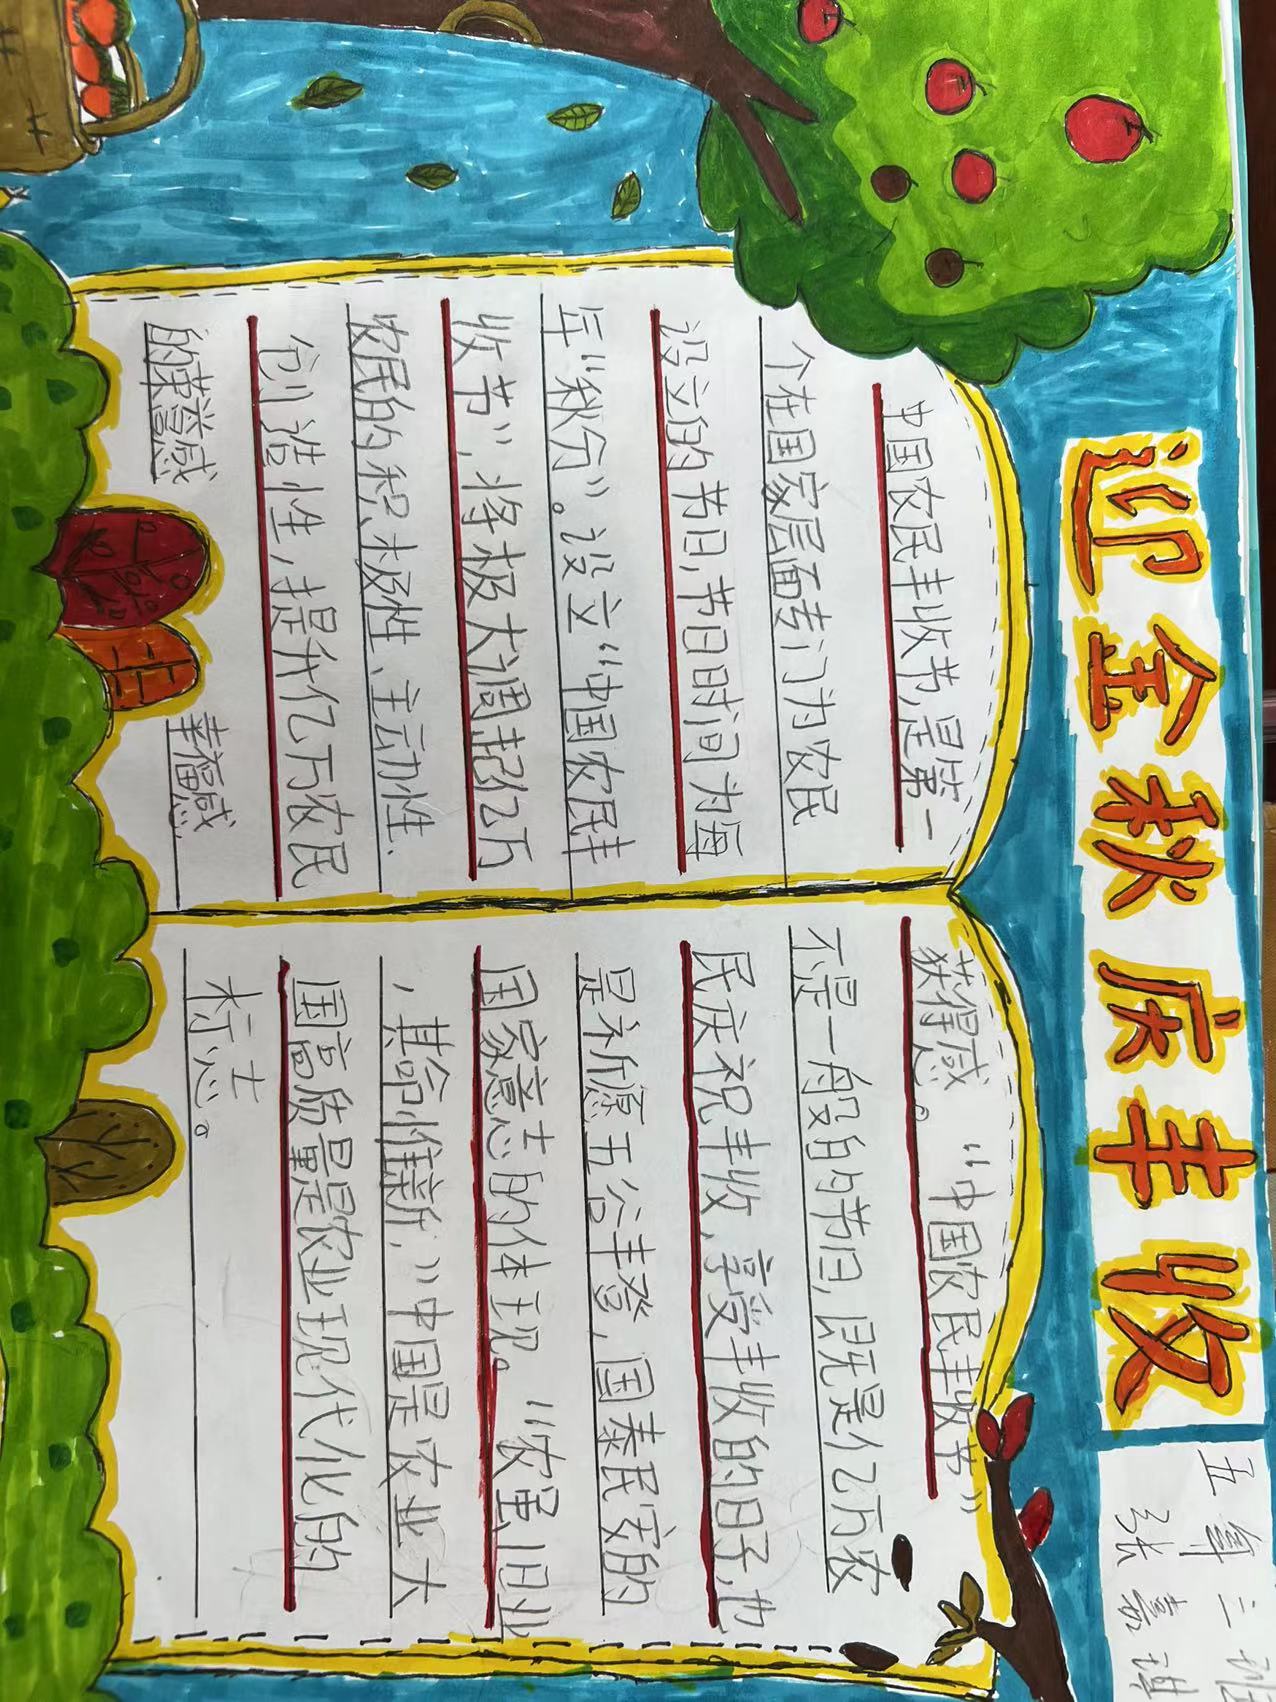 迎金秋庆丰收
五年二班
张嘉琪
中国农民丰收节,是第一
个在国家层面专门为农民
设立的节日,节日时间为每
年“秋分”。设立“中国农民丰
收节”,将极大调起亿万
农民的积极性、主动性、
创造性,提升亿万农民
的荣誉感
幸福感、
获得感。“中国农民丰收节”
不是一般的节日,既是亿万农
民庆祝丰收,享受丰收的日子,也
是祈愿五谷丰登,国泰民安的
国家意志的体现。“农虽旧业
,其命惟新,”中国是农业大
国高质量是农业现代化的
标志。